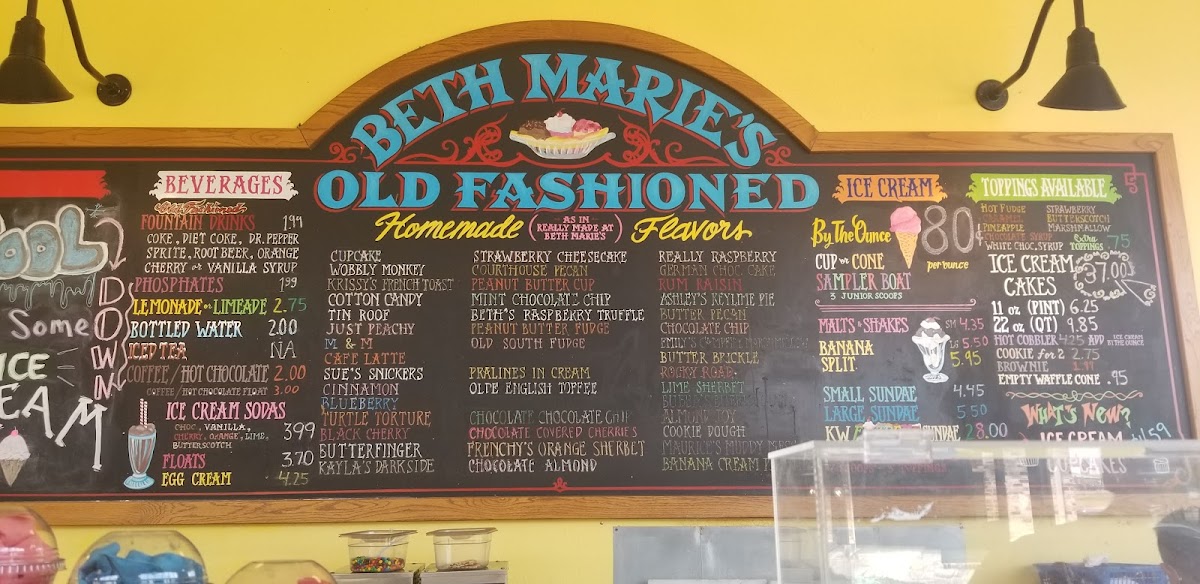 OOL
Some
ICE
EAM
DOWN
BEVERAGES
Old Fashioned
FOUNTAIN DRINKS 1.99
COKE, DIET COKE, DR. PEPPER
SPRITE, ROOT BEER, ORANGE
CHERRY or VANILLA SYRUP
PHOSPHATES 1.99
LEMONADE or LIMEADE 2.75
BOTTLED WATER 2.00
ICED TEA NA
COFFEE / HOT CHOCOLATE 2.00
COFFEE / HOT CHOCOLATE FLOAT 3.00
ICE CREAM SODAS 3.99
CHOC, VANILLA,
CHERRY, ORANGE, LIME,
BUTTERSCOTCH
FLOATS 3.70
EGG CREAM 4.25
BETH MARIE'S
OLD FASHIONED
Homemade (AS IN REALLY MADE AT BETH MARIE'S) Flavors
CUPCAKE
WOBBLY MONKEY
KRISSY'S FRENCH TOAST
COTTON CANDY
TIN ROOF
JUST PEACHY
M & M
CAFE LATTE
SUE'S SNICKERS
CINNAMON
BLUEBERRY
TURTLE TORTURE
BLACK CHERRY
BUTTERFINGER
KAYLA'S DARKSIDE
STRAWBERRY CHEESECAKE
COURTHOUSE PECAN
PEANUT BUTTER CUP
MINT CHOCOLATE CHIP
BETH'S RASPBERRY TRUFFLE
PEANUT BUTTER FUDGE
OLD SOUTH FUDGE
PRALINES IN CREAM
OLDE ENGLISH TOFFEE
CHOCOLATE CHOCOLATE CHIP
CHOCOLATE COVERED CHERRIES
FRENCHY'S ORANGE SHERBET
CHOCOLATE ALMOND
REALLY RASPBERRY
GERMAN CHOC. CAKE
RUM RAISIN
ASHLEY'S KEYLIME PIE
BUTTER PECAN
CHOCOLATE CHIP
EMILY'S
BUTTER BRICKLE
ROCKY ROAD
LIME SHERBET
ALMOND JOY
COOKIE DOUGH
MAURICE'S MUDDY
BANANA CREAM
ICE CREAM
By The Ounce 80¢
per ounce
CUP or CONE
SAMPLER BOAT
3 JUNIOR SCOOPS
MALTS & SHAKES SM 4.35
5.50
BANANA SPLIT 5.95
SMALL SUNDAE 4.45
LARGE SUNDAE 5.50
KW SUNDAE 28.00
TOPPINGS AVAILABLE
HOT FUDGE STRAWBERRY
CARAMEL BUTTERSCOTCH
PINEAPPLE MARSHMALLOW
CHOCOLATE SYRUP
WHITE CHOC. SYRUP EXTRA TOPPINGS .75
ICE CREAM CAKES 37.00
11 oz (PINT) 6.25
22 oz (QT) 9.85
HOT COBBLER 4.25 ADD ICE CREAM BY THE OUNCE
COOKIE for 2 2.75
BROWNIE
EMPTY WAFFLE CONE .95
What's New?
ICE CREAM
CUPCAKES